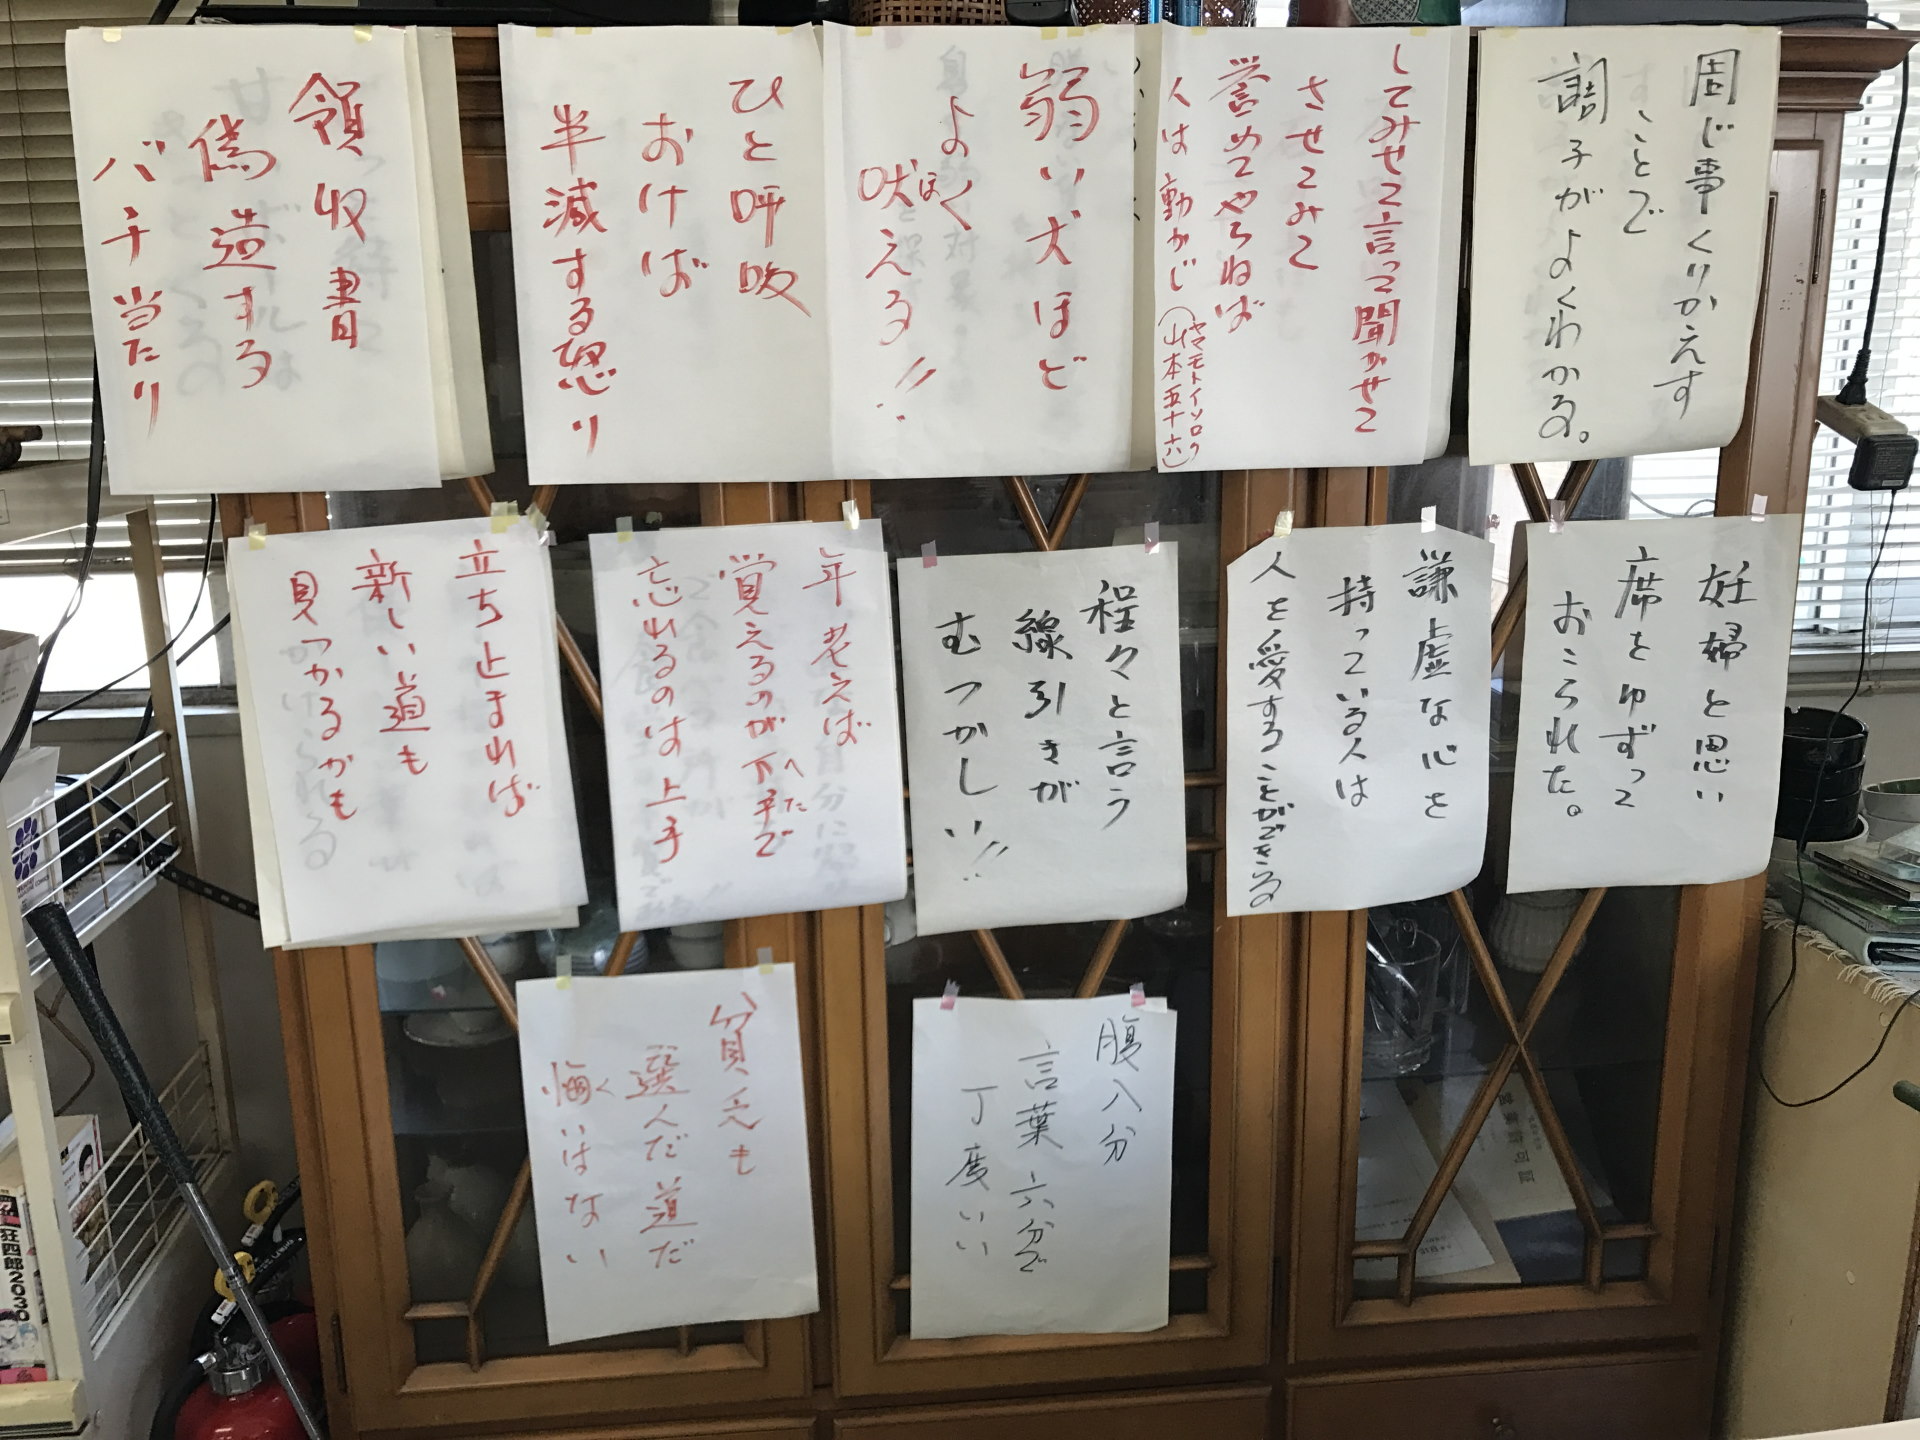 同じ事くりかえす
ことで
調子がよくわかる。
してみせて言って聞かせて
させてみて
誉めてやらねば
人は動かじ(山本五十六)
ヤマモトイソロク
弱い犬ほど
よく
吠える!!
ほ
ひと呼吸
おけば
半減する怒り
領収書
偽造する
バチ当たり
妊婦と思い
席をゆずって
おこられた。
謙虚な心を
持っている人は
人を愛することができる
程々と言う
線引きが
むつかしい!!
年老えば
覚えるのが下手で
へた
忘れるのは上手
立ち止まれば
新しい道も
見つかるかも
腹八分
言葉六分で
丁度いい
貧乏も
選んだ道だ
悔いはない
く
狂四郎2030